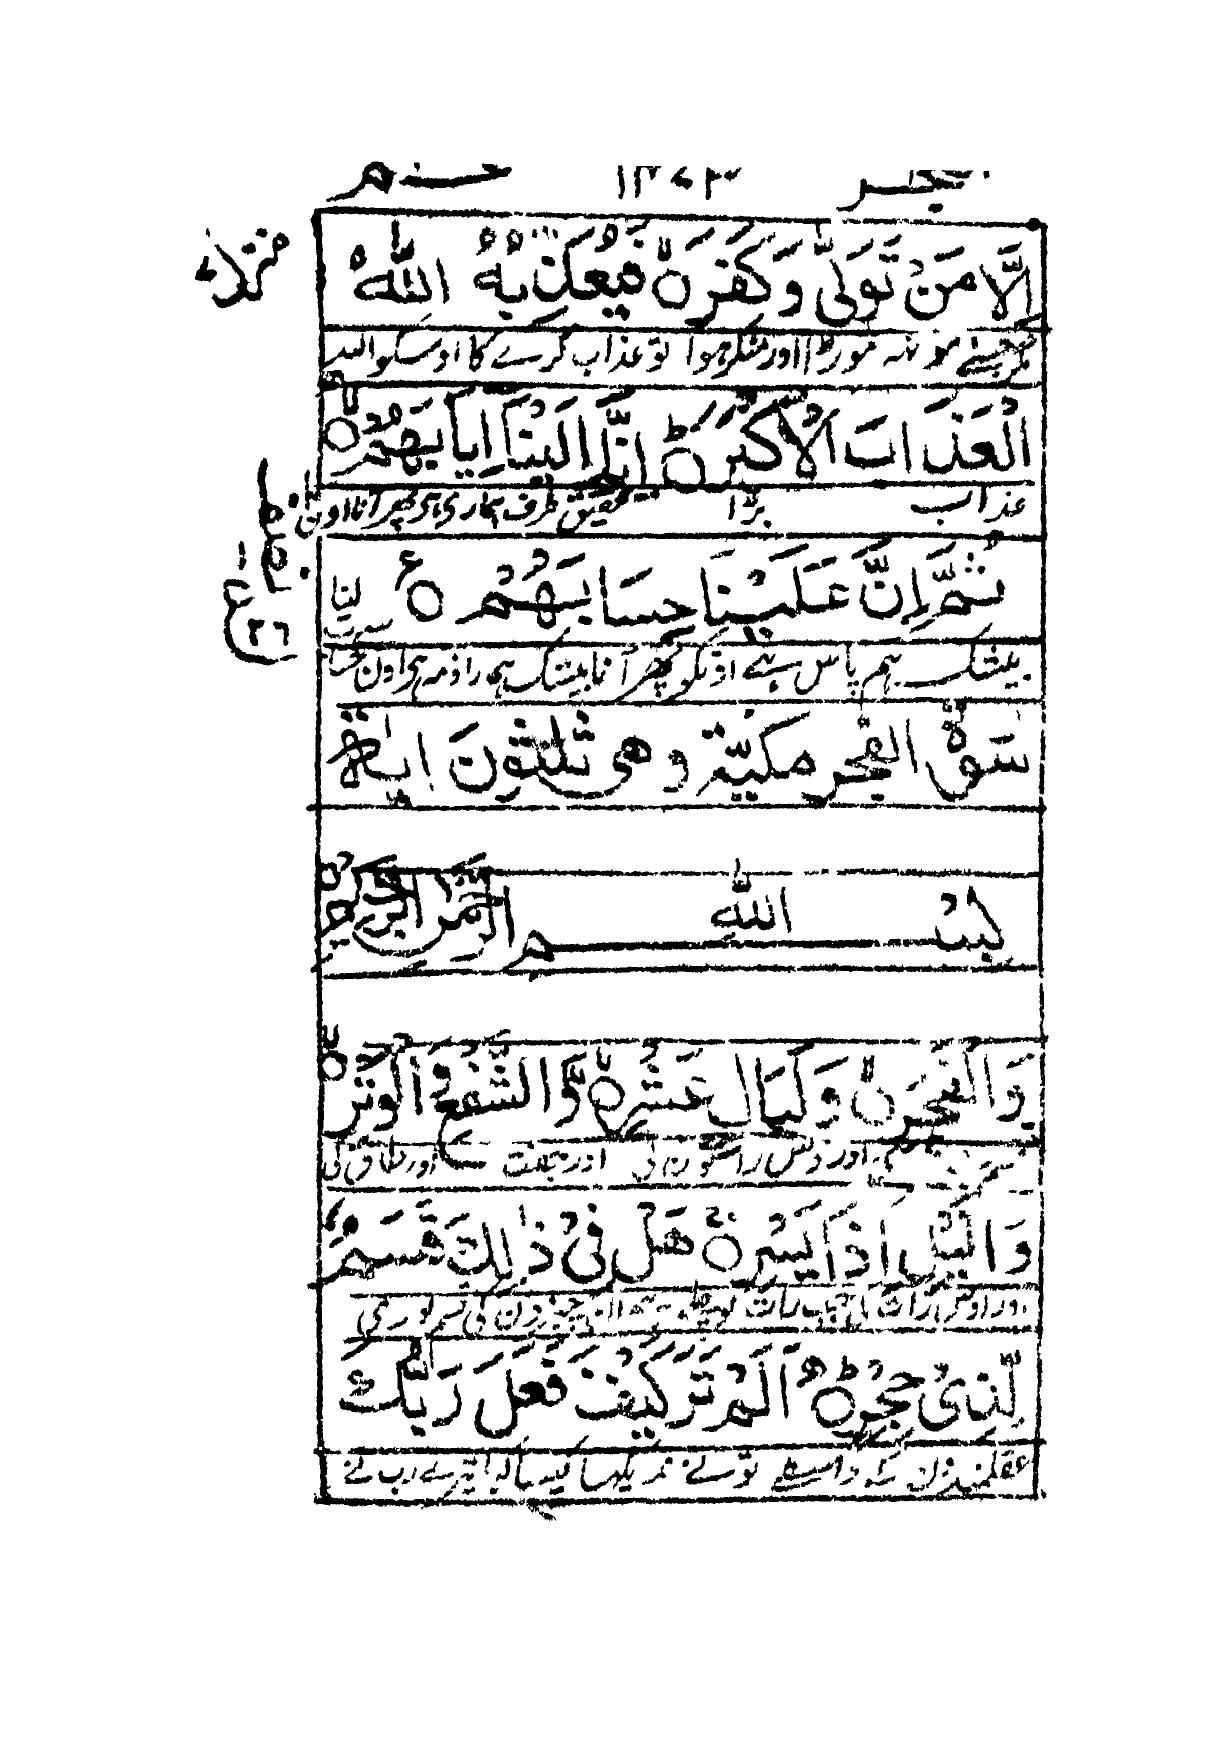 اِلَّا مَنْ تَوَلّٰى وَكَفَرَ ۙ فَيُعَذِّبُهُ اللّٰهُ
جسنے مونہہ موڑا اور منکر ہوا تو عذاب کرے گا اوسکو اللہ
الْعَذَابَ الْاَكْبَرَ ؕ اِنَّ اِلَيْنَاۤ اِيَابَهُمْ ۙ
عذاب بڑا تحقیق طرف ہماری ہی پھر آنا اون
ثُمَّ اِنَّ عَلَيْنَا حِسَابَهُمْ ۠
بیشک ہم پاس ہے اونکو پھر آنا بیشک ہمارا ذمہ ہی اون
سورة الفجر مكية وهى ثلثون اٰية
بِسْمِ اللّٰهِ الرَّحْمٰنِ الرَّحِيْمِ
وَالْفَجْرِ ۙ وَلَيَالٍ عَشْرٍ ۙ وَّالشَّفْعِ وَالْوَتْرِ ۙ
اور دس راتون کی اور جفت اور طاق کی
وَالَّيْلِ اِذَا يَسْرِ ۚ هَلْ فِىْ ذٰلِكَ قَسَمٌ
اور اوس رات کی جب رات ان چیزون کی قسم پوری
لِّذِىْ حِجْرٍ ؕ اَلَمْ تَرَ كَيْفَ فَعَلَ رَبُّكَ
عقلمندون کے واسطے تونے نہ دیکھا کیسا کیا تیرے رب نے